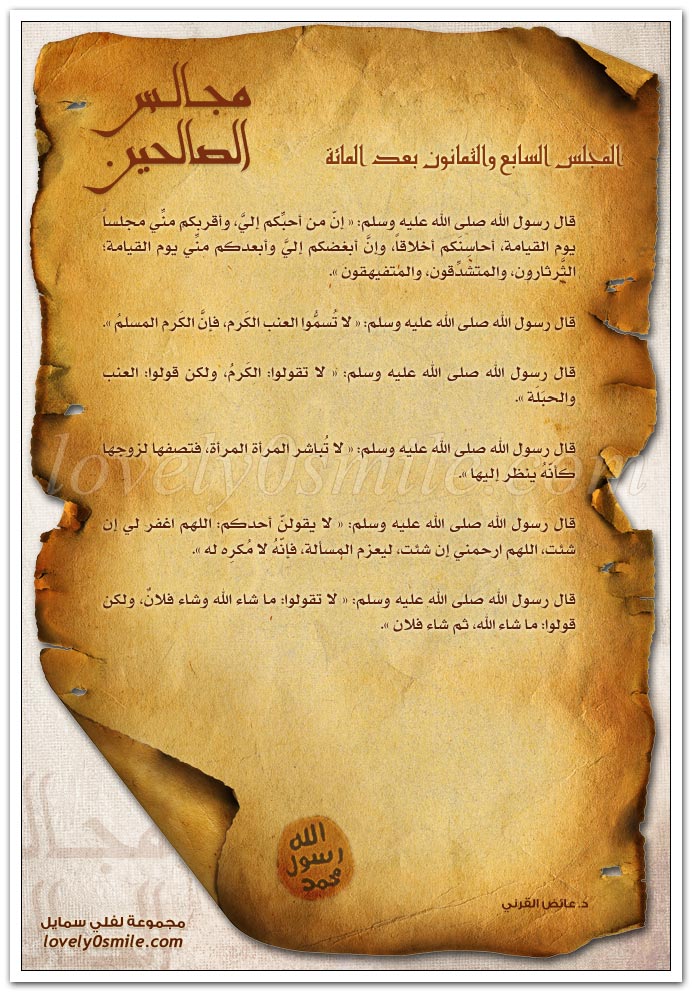 مجالس
الصالحين
المجلس السابع والثمانون بعد المائة
قال رسول الله صلى الله عليه وسلم: « إنّ من أحبِّكم إليَّ، وأقربكم منِّي مجلساً
يوم القيامة، أحاسنكم أخلاقاً، وإنَّ أبغضكم إليَّ وأبعدكم منِّي يوم القيامة؛
الثَّرثارون، والمتشدِّقون، والمُتفيهقون ».
قال رسول الله صلى الله عليه وسلم: « لا تُسمُّوا العنب الكَرم، فإنَّ الكَرم المسلمُ ».
قال رسول الله صلى الله عليه وسلم: « لا تقولوا: الكَرمُ، ولكن قولوا: العنب
والحبَلَة ».
قال رسول الله صلى الله عليه وسلم: « لا تُباشر المرأة المرأة، فتصفها لزوجها
كأنّهُ ينظر إليها ».
قال رسول الله صلى الله عليه وسلم: « لا يقولنّ أحدكم: اللهم اغفر لي إن
شئت، اللهم ارحمني إن شئت، ليعزم المسألة، فإنّهُ لا مُكرِه له ».
قال رسول الله صلى الله عليه وسلم: « لا تقولوا: ما شاء الله وشاء فلانٌ، ولكن
قولوا: ما شاء الله، ثم شاء فلان ».
lovely0smile.com
الله
رسول
محمد
د.عائض القرني
مجموعة لفلي سمايل
lovely0smile.com